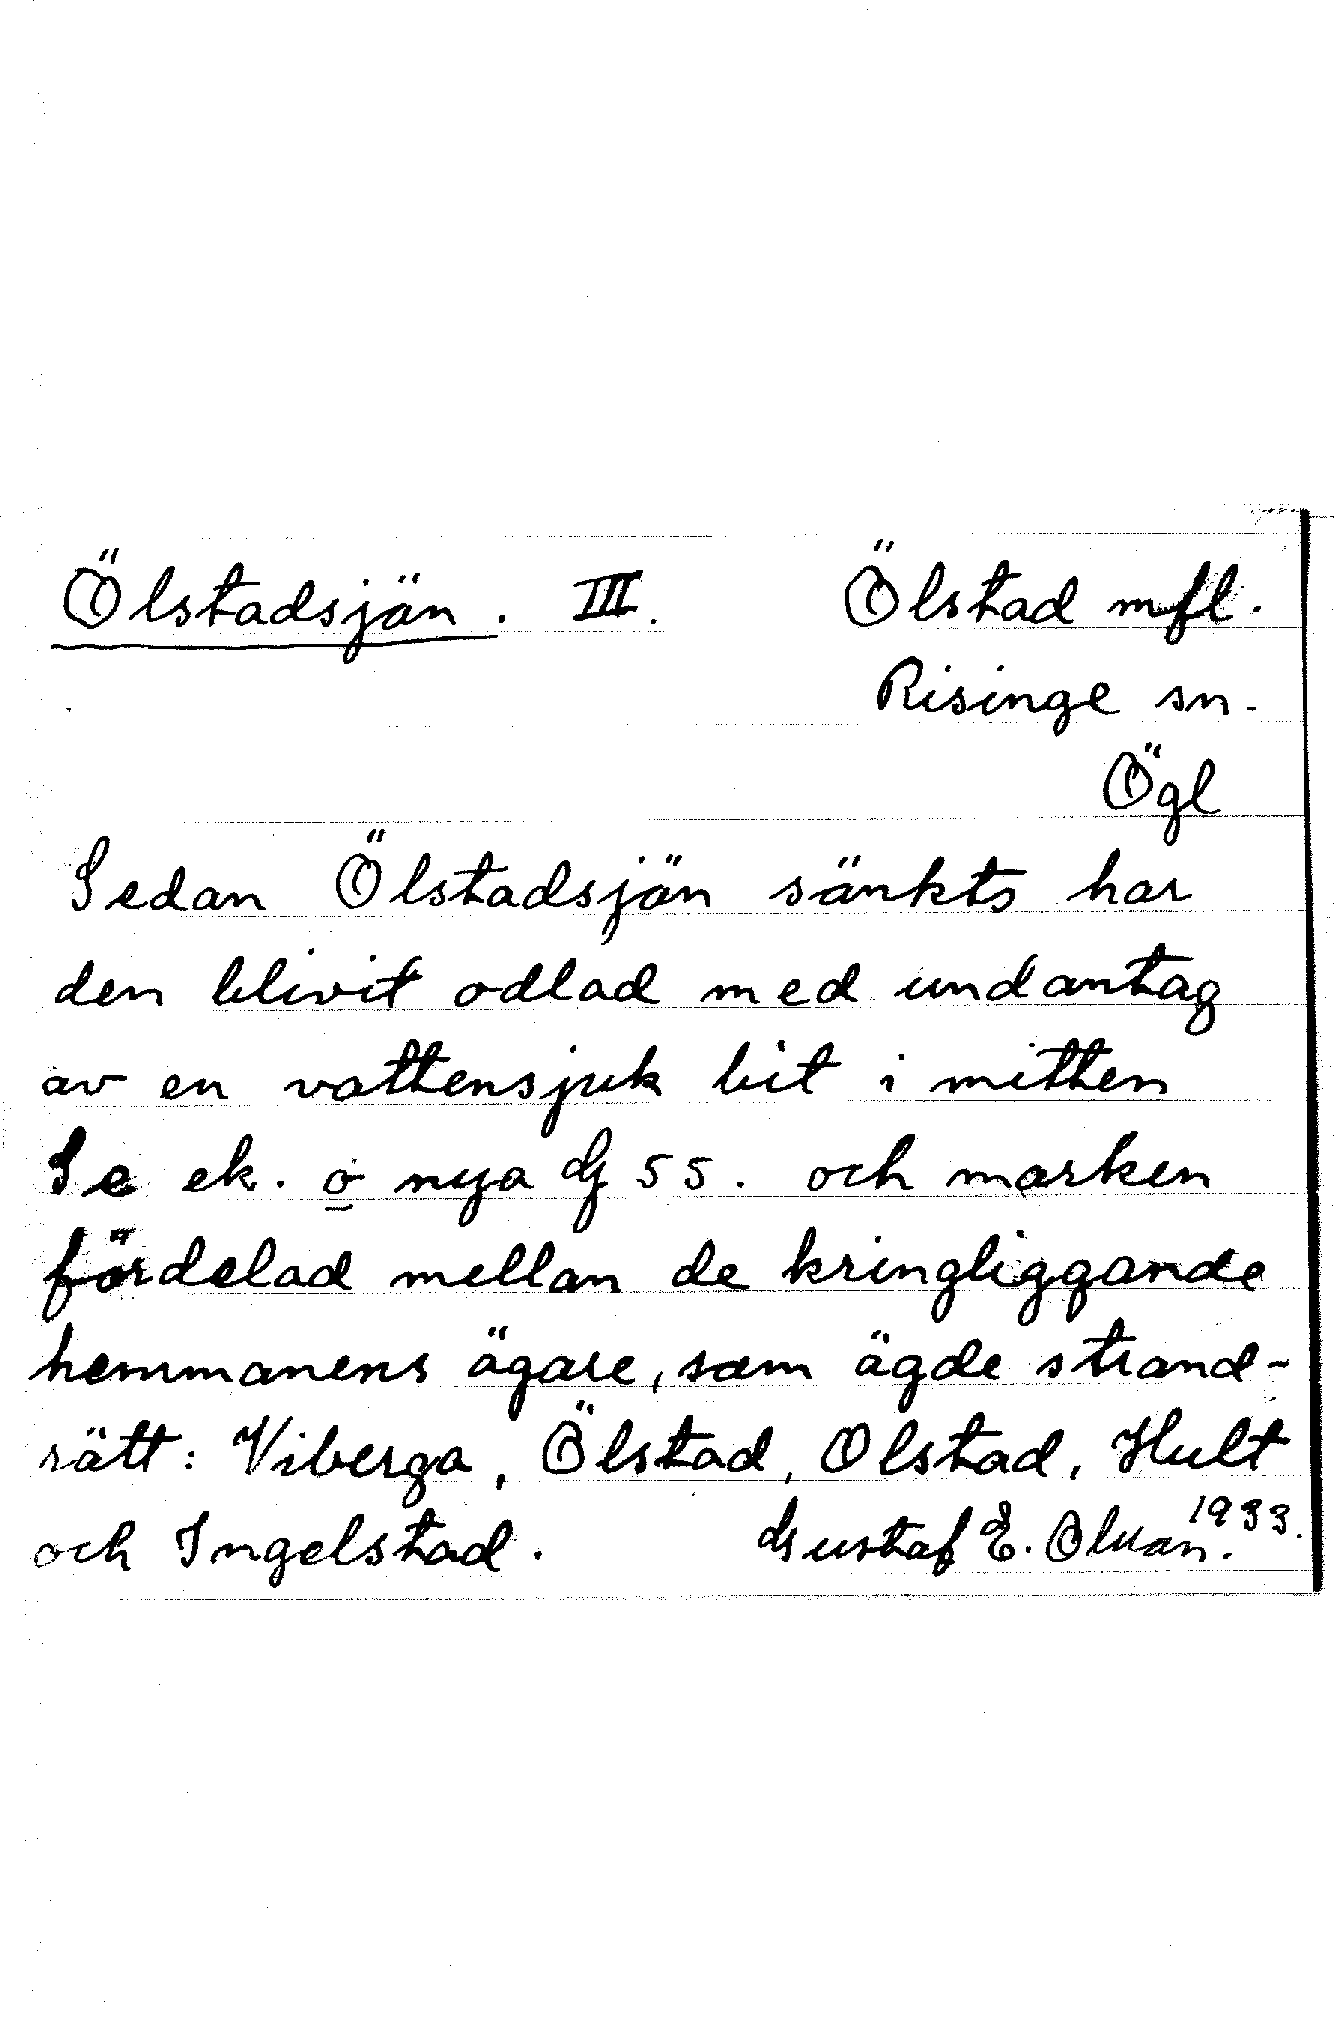 Ölstadsjön. III. Ölstad mfl.
Risinge sn.
Ögl
Sedan Ölstadsjön sänkts har
den blivit odlad med undantag
av en vattensjuk bit i mitten
Se ek. o nya G 55. och marken
fördelad mellan de kringliggande
hemmanens ägare, som ägde strand-
rätt: Viberga, Ölstad, Olstad, Hult
och Ingelstad. Gustaf E. Olson. 1933.